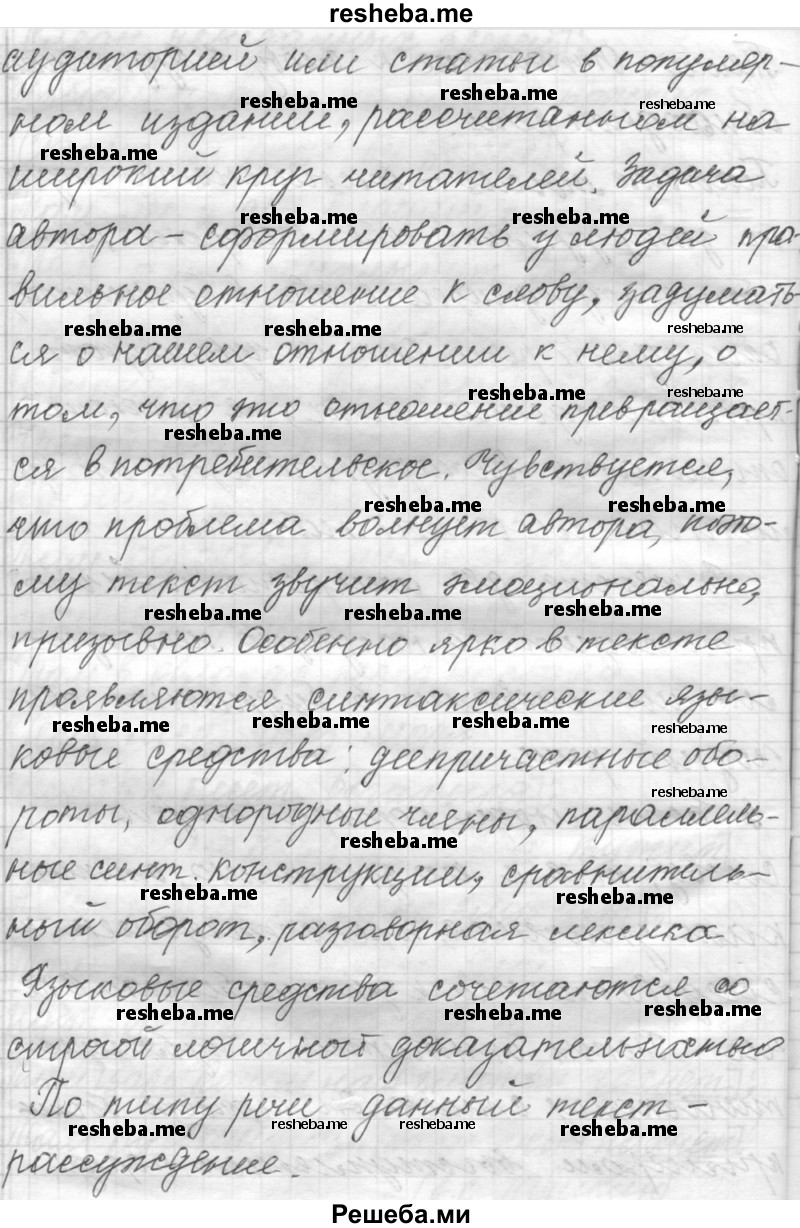 resheba.me
аудиторией или статьи в популяр-
resheba.me resheba.me resheba.me
ном издании, рассчитанном на
resheba.me
широкий круг читателей. Задача
resheba.me resheba.me
автора – сформировать у людей пра-
вильное отношение к слову, задумать-
resheba.me resheba.me resheba.me
ся о нашем отношении к нему, о
resheba.me resheba.me
том, что это отношение превращает-
resheba.me
ся в потребительское. Чувствуется,
resheba.me resheba.me
что проблема волнует автора, поэто-
му текст звучит эмоционально,
resheba.me resheba.me resheba.me
призывно. Особенно ярко в тексте
проявляются синтаксические язы-
resheba.me resheba.me resheba.me resheba.me
ковые средства: деепричастные обо-
resheba.me
роты, однородные члены, параллель-
resheba.me
ные синт. конструкции, сравнитель-
resheba.me resheba.me
ный оборот, разговорная лексика
Языковые средства сочетаются со
resheba.me resheba.me resheba.me
строгой логичной доказательностью
По типу речи данный текст –
resheba.me resheba.me resheba.me resheba.me
рассуждение.
Решеба.ми